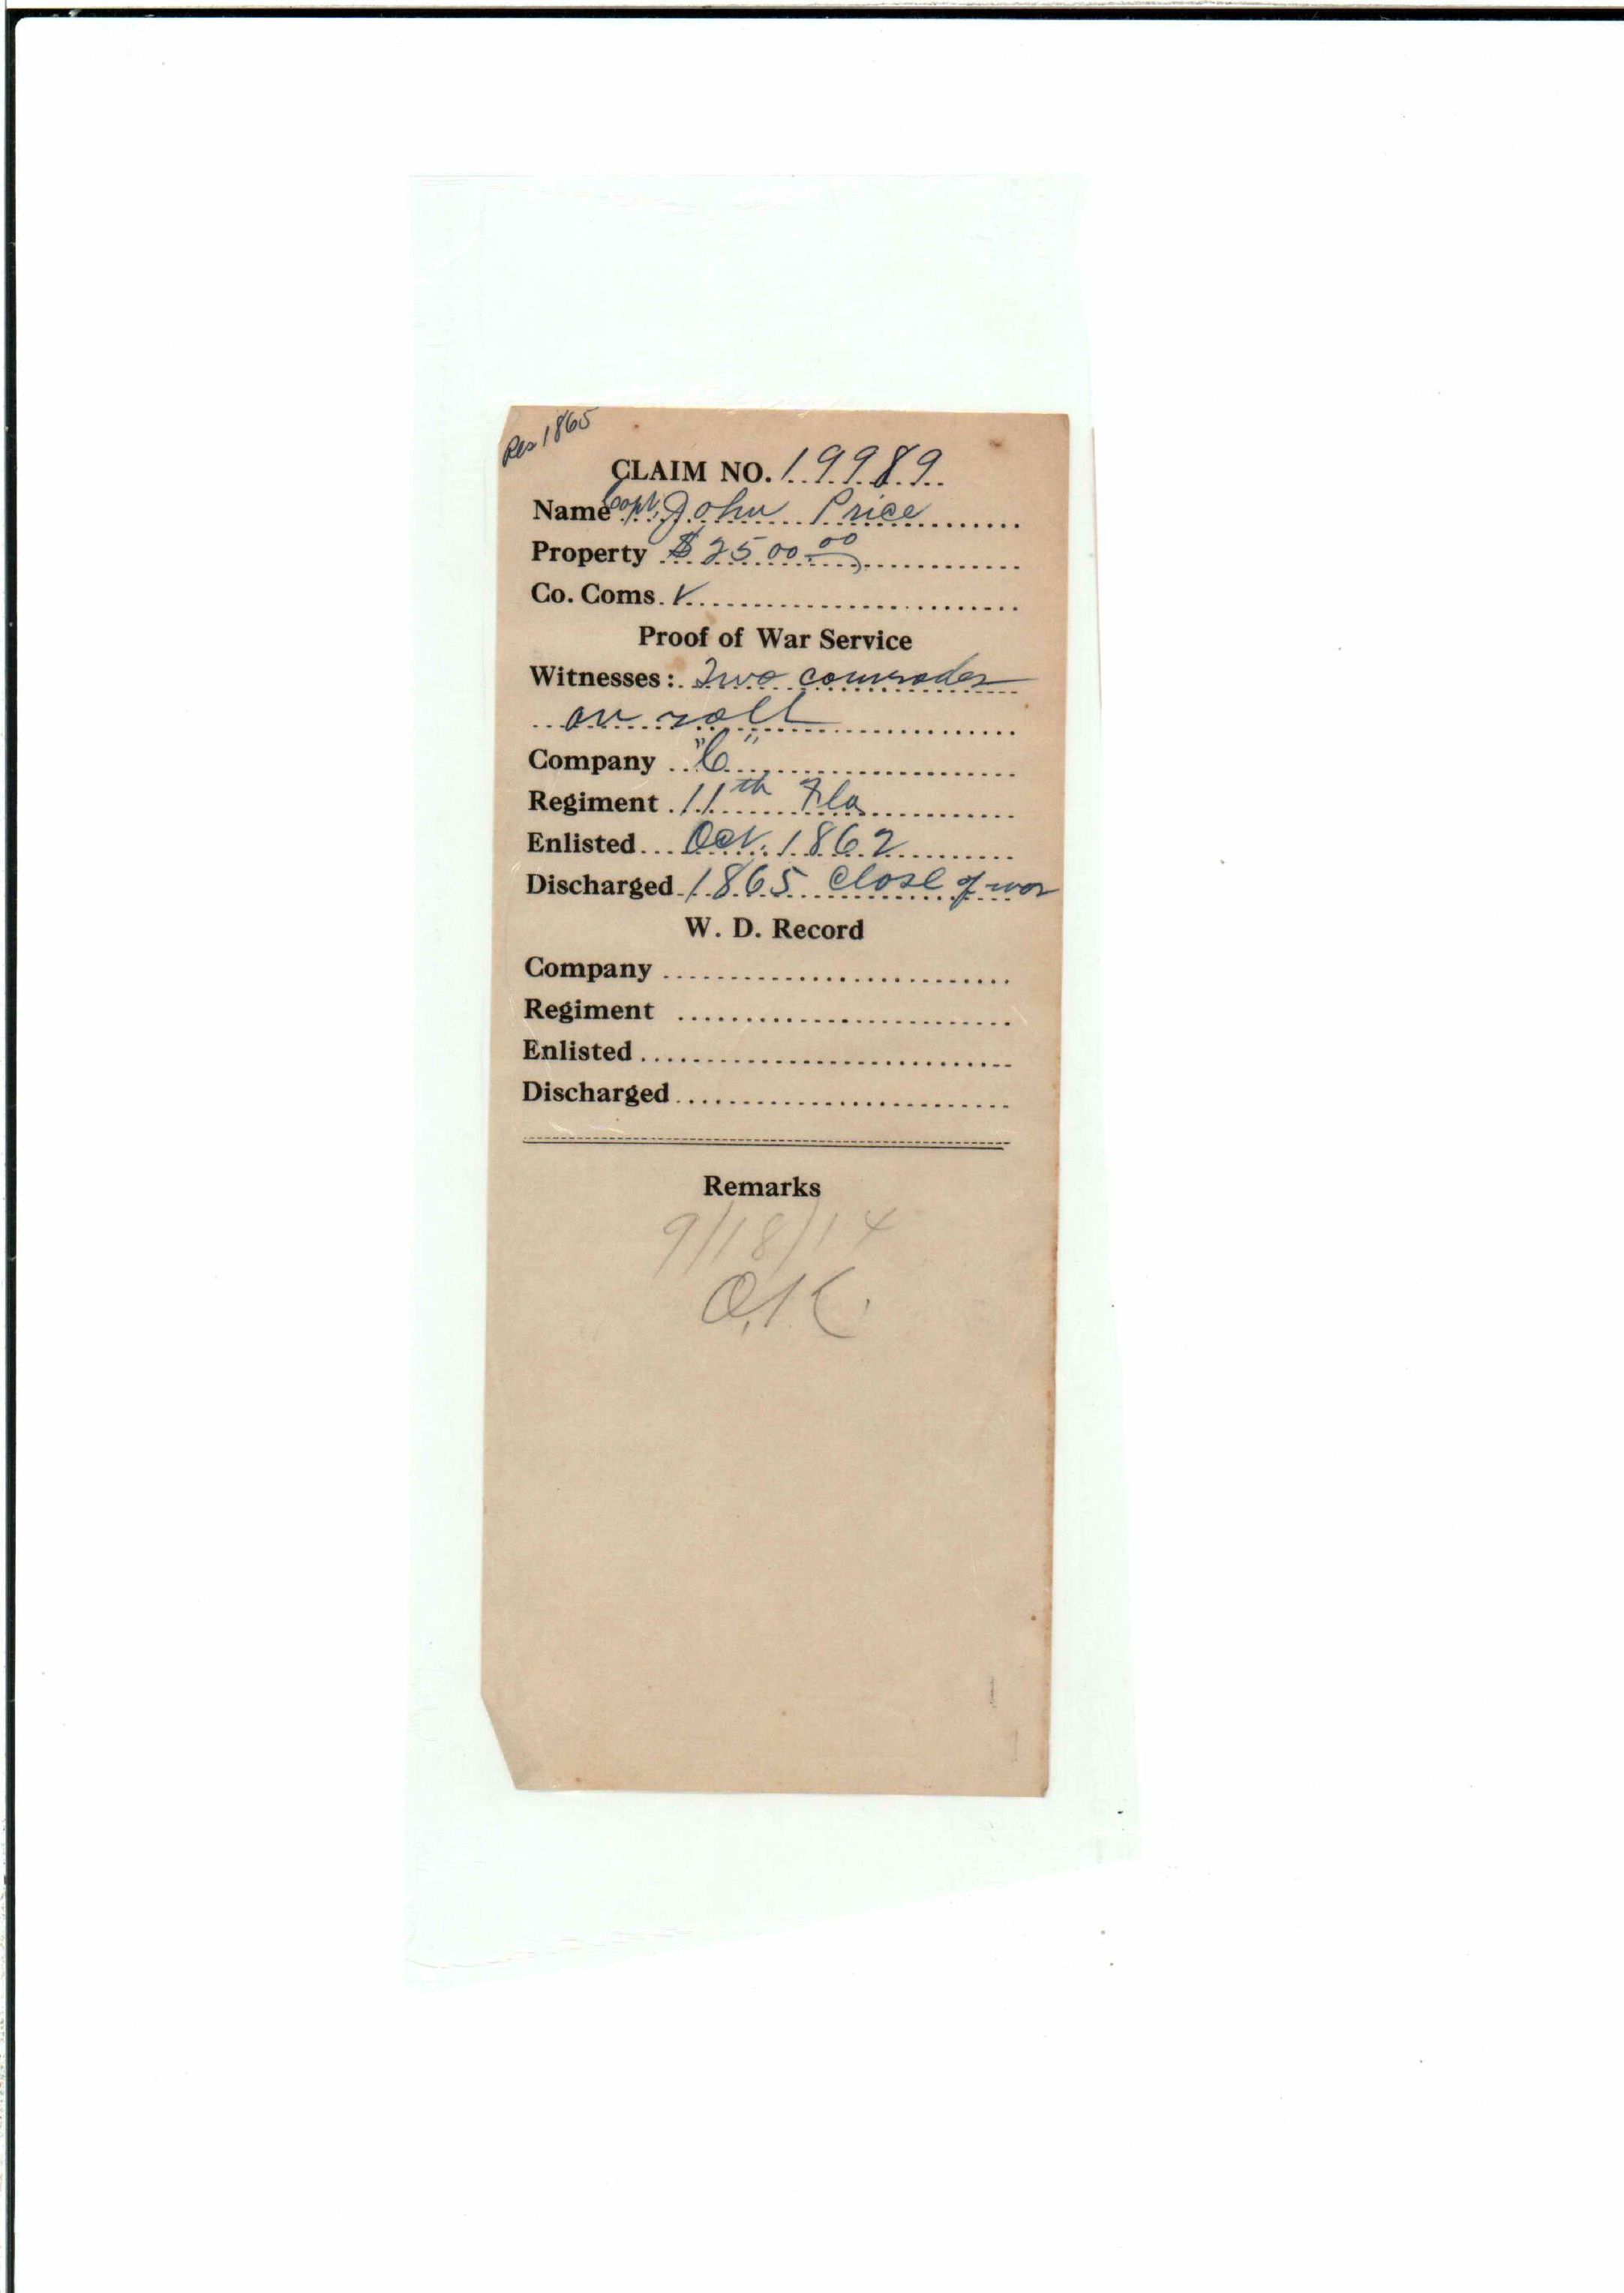 Res 1865
CLAIM NO. 19989
Name Capt. John Price
Property $2500.00
Co. Coms. ✓
Proof of War Service
Witnesses: Two comrades
on roll
Company "C"
Regiment 11th Fla
Enlisted Oct. 1862
Discharged 1865 Close of war
W. D. Record
Company
Regiment
Enlisted
Discharged
Remarks
9/18/14
O.K.